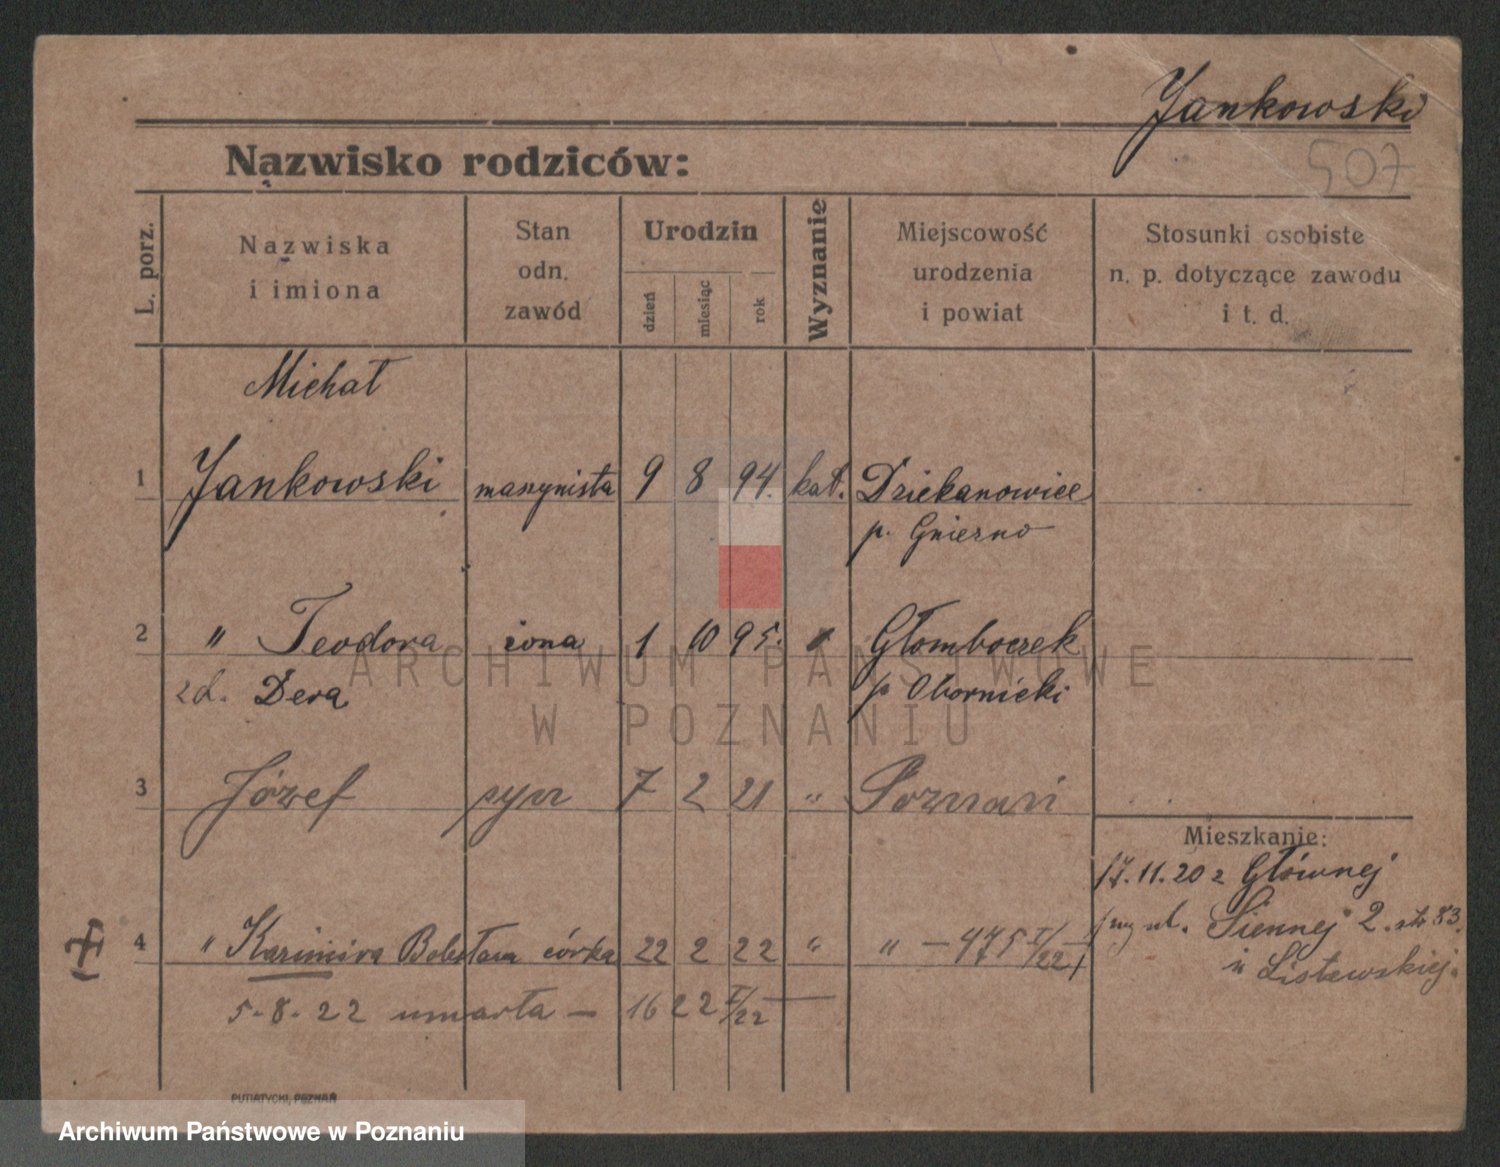 Jankowski
507
Nazwisko rodziców:
L. porz.
Nazwiska
i imiona
Stan
odn.
zawód
Urodzin
dzień
miesiąc
rok
Wyznanie
Miejscowość
urodzenia
i powiat
Stosunki osobiste
n. p. dotyczące zawodu
i t. d.
Michał
1 Jankowski maszynista 9 8 94. kat. Dziekanowice
p. Gniezno
2 " Teodora żona 1 10 95. " Głomboczek
zd. Dera p Obornicki
3 Józef syn 7 2 21 " Poznań
Mieszkanie:
17.11.20 z Głównej
4 " Kazimira córka 22 2 22 " " — 475 I/22
ul. Siennej 2. 83.
u Listewskiej.
5-8-22 umarła — 1622 I/22 —
PUTIATYCKI, POZNAŃ
ARCHIWUM PAŃSTWOWE
W POZNANIU
Archiwum Państwowe w Poznaniu